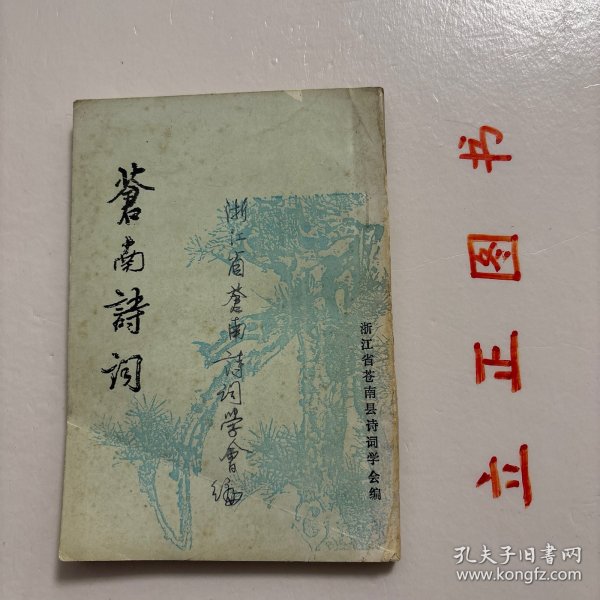 蒼南詩词
浙江省蒼南诗词学會编
浙江省苍南县诗词学会编
立正图书
孔夫子旧书网
www.kongfz.com